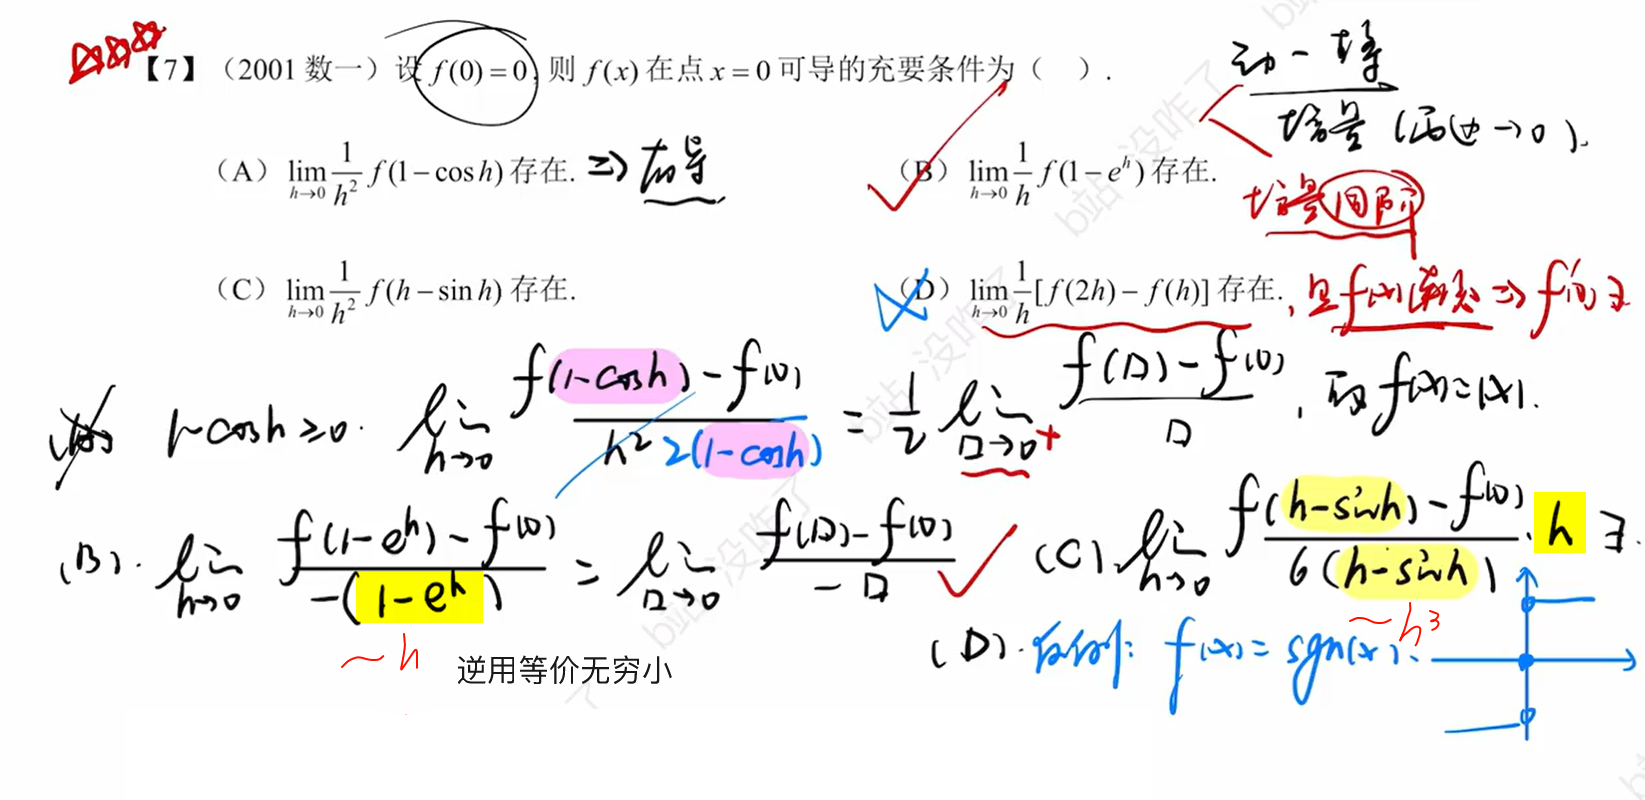 【7】（2001 数一）设 f(0)=0, 则 f(x) 在点 x=0 可导的充要条件为（ ）.
动一静
增量 (两边→0).
(A) lim_{h→0} 1/h² f(1−cos h) 存在. ⇒ 右导
(B) lim_{h→0} 1/h f(1−e^h) 存在.
增量同阶
(C) lim_{h→0} 1/h² f(h−sin h) 存在.
(D) lim_{h→0} 1/h [f(2h)−f(h)] 存在. , 且f(x)连续 ⇒ f'(0)∃
(A) 1-cosh≥0. lim_{h→0} (f(1-cosh)-f(0))/h² 2(1-cosh) = 1/2 lim_{□→0+} (f(□)-f(0))/□ , 取 f(x)=|x|.
(B). lim_{h→0} (f(1-e^h)-f(0))/(-(1-e^h)) = lim_{□→0} (f(□)-f(0))/(-□) ✓
~h 逆用等价无穷小
(C). lim_{h→0} (f(h-sinh)-f(0))/(6(h-sinh)) · h ∃.
~h³
(D). 反例: f(x)=sgn(x).
b站 没咋了
b站 没咋了
b站 没咋了
b站 没咋了
b站